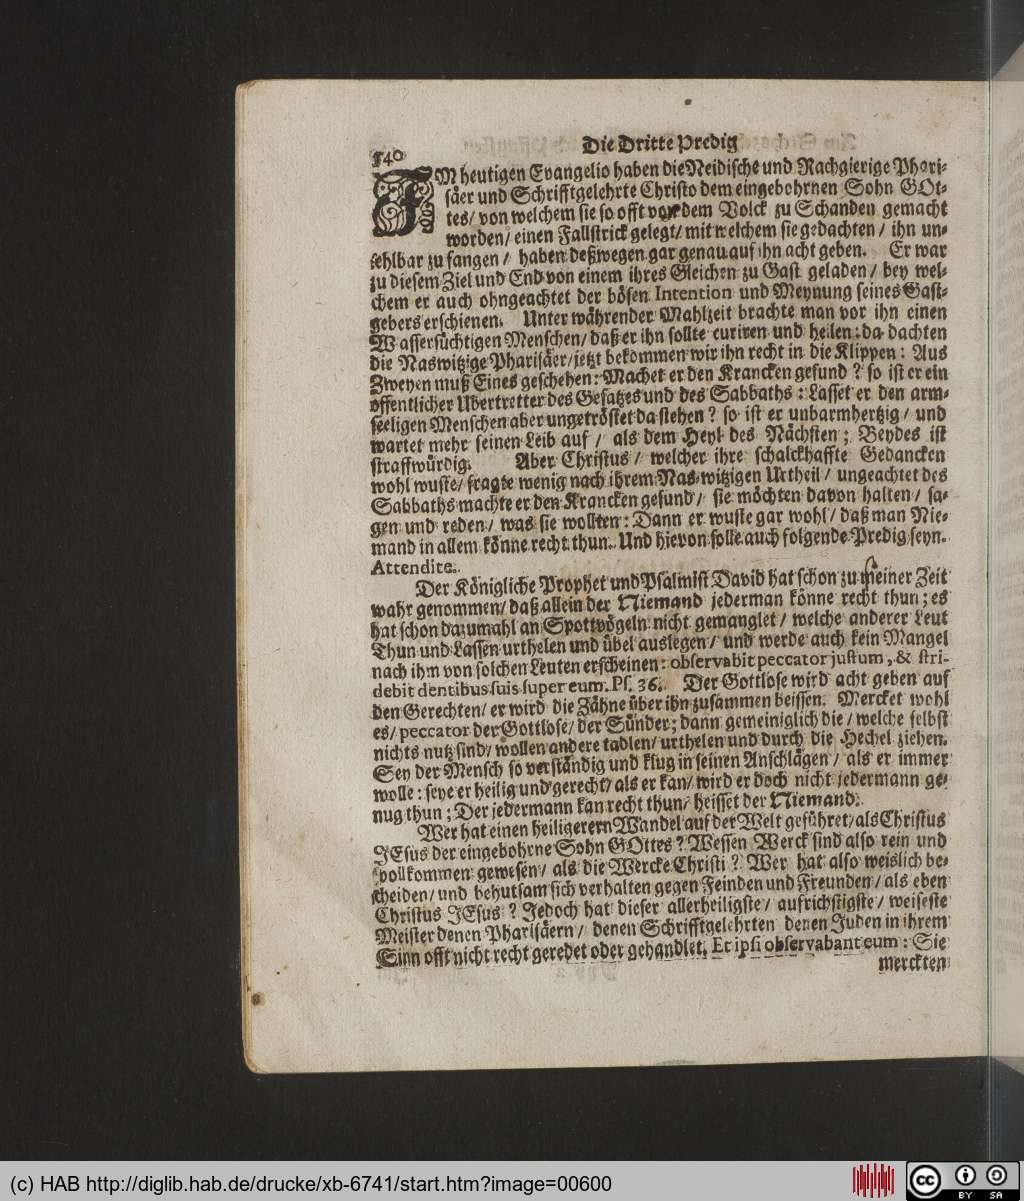 540
Die Dritte Predig
IM heutigen Evangelio haben die Neidische und Rachgierige Phari-
säer und Schrifftgelehrte Christo dem eingebohrnen Sohn GOt-
tes/ von welchem sie so offt vor dem Volck zu Schanden gemacht
worden/ einen Fallstrick gelegt/ mit welchem sie gedachten/ ihn un-
fehlbar zu fangen/ haben deßwegen gar genau auf ihn acht geben. Er war
zu diesem Ziel und End von einem ihres Gleichen zu Gast geladen/ bey wel-
chem er auch ohngeachtet der bösen Intention und Meynung seines Gast-
gebers erschienen. Unter währender Mahlzeit brachte man vor ihn einen
Wassersüchtigen Menschen/ daß er ihn sollte curiren und heilen: da dachten
die Naswitzige Pharisäer/ jetzt bekommen wir ihn recht in die Klippen: Aus
Zweyen muß Eines geschehen: Machet er den Krancken gesund? so ist er ein
öffentlicher Ubertretter des Gesatzes und des Sabbaths: Lasset er den arm-
seeligen Menschen aber ungetröstet da stehen? so ist er unbarmhertzig/ und
wartet mehr seinen Leib auf/ als dem Heyl des Nächsten; Beydes ist
straffwürdig. Aber Christus/ welcher ihre schalckhaffte Gedancken
wohl wuste/ fragte wenig nach ihrem Nas-witzigen Urtheil/ ungeachtet des
Sabbaths machte er den Krancken gesund/ sie möchten davon halten/ sa-
gen und reden/ was sie wollten: Dann er wuste gar wohl/ daß man Nie-
mand in allem könne recht thun. Und hievon solle auch folgende Predig seyn.
Attendite.
Der Königliche Prophet und Psalmist David hat schon zu seiner Zeit
wahr genommen/ daß allein der Niemand jederman könne recht thun; es
hat schon dazumahl an Spottvögeln nicht gemanglet/ welche anderer Leut
Thun und Lassen urthelen und übel auslegen/ und werde auch kein Mangel
nach ihm von solchen Leuten erscheinen: observabit peccator justum, & stri-
debit dentibus suis super eum. Ps. 36. Der Gottlose wird acht geben auf
den Gerechten/ er wird die Zähne über ihn zusammen beissen. Mercket wohl
es/ peccator der Gottlose/ der Sünder; dann gemeiniglich die/ welche selbst
nichts nutz sind/ wollen andere tadlen/ urthelen und durch die Hechel ziehen.
Sey der Mensch so verständig und klug in seinen Anschlägen/ als er immer
wolle: seye er heilig und gerecht/ als er kan/ wird er doch nicht jedermann ge-
nug thun; Der jedermann kan recht thun/ heisset der Niemand.
Wer hat einen heiligerern Wandel auf der Welt geführet/ als Christus
JEsus der eingebohrne Sohn GOttes? Wessen Werck sind also rein und
vollkommen gewesen/ als die Wercke Christi? Wer hat also weislich be-
scheiden/ und behutsam sich verhalten gegen Feinden und Freunden/ als eben
Christus JEsus? Jedoch hat dieser allerheiligste/ aufrichstigste/ weiseste
Meister denen Pharisäern/ denen Schrifftgelehrten denen Juden in ihrem
Sinn offt nicht recht geredet oder gehandlet. Et ipsi observabant eum: Sie
merckten
(c) HAB http://diglib.hab.de/drucke/xb-6741/start.htm?image=00600
cc BY SA